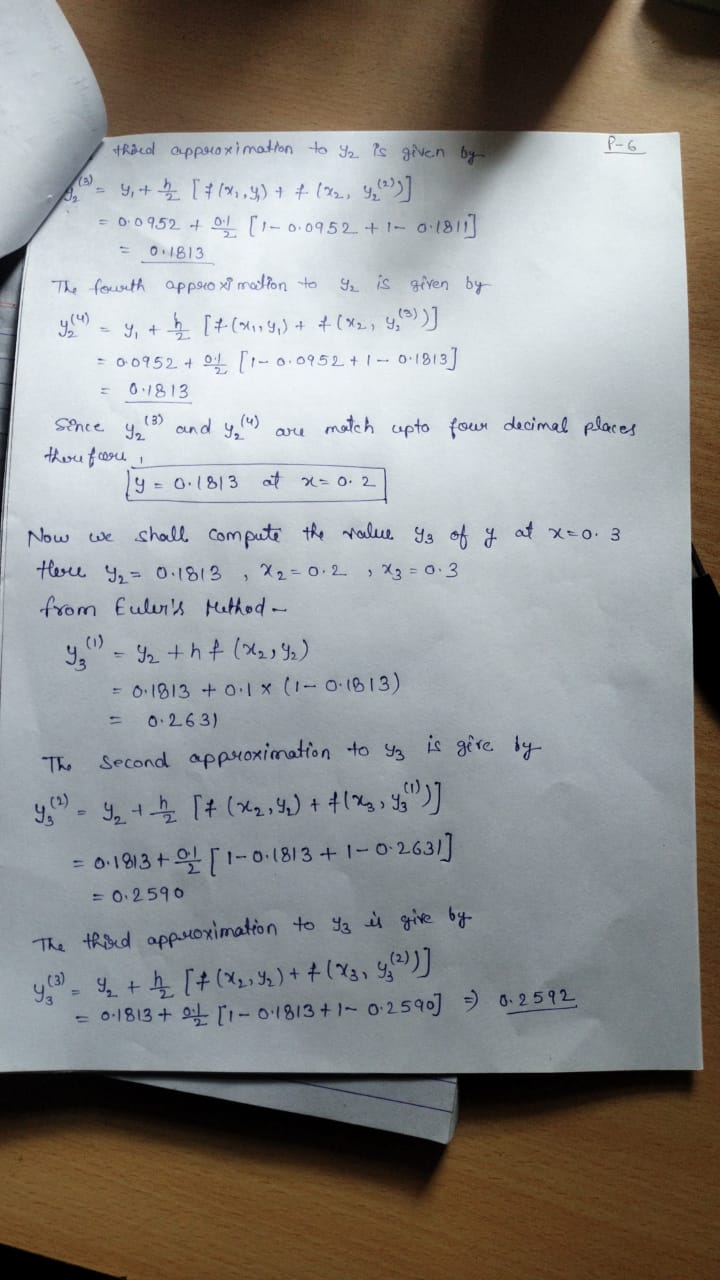 P-6
third approximation to y₂ is given by
y₂⁽³⁾ = y₁ + h/2 [f(x₁, y₁) + f(x₂, y₂⁽²⁾)]
= 0.0952 + 0.1/2 [1- 0.0952 + 1- 0.1811]
= 0.1813
The fourth approximation to y₂ is given by
y₂⁽⁴⁾ = y₁ + h/2 [f(x₁, y₁) + f(x₂, y₂⁽³⁾)]
= 0.0952 + 0.1/2 [1- 0.0952 + 1- 0.1813]
= 0.1813
Since y₂⁽³⁾ and y₂⁽⁴⁾ are match upto four decimal places
therefore,
y = 0.1813 at x = 0.2
Now we shall compute the value y₃ of y at x=0.3
Here y₂ = 0.1813 , x₂ = 0.2 , x₃ = 0.3
from Euler's Method -
y₃⁽¹⁾ = y₂ + h f (x₂, y₂)
= 0.1813 + 0.1 x (1- 0.1813)
= 0.2631
The Second approximation to y₃ is give by
y₃⁽²⁾ = y₂ + h/2 [f (x₂, y₂) + f(x₃, y₃⁽¹⁾)]
= 0.1813 + 0.1/2 [1- 0.1813 + 1- 0.2631]
= 0.2590
The third approximation to y₃ is give by
y₃⁽³⁾ = y₂ + h/2 [f (x₂, y₂) + f (x₃, y₃⁽²⁾)]
= 0.1813 + 0.1/2 [1- 0.1813 + 1- 0.2590] ⇒ 0.2592